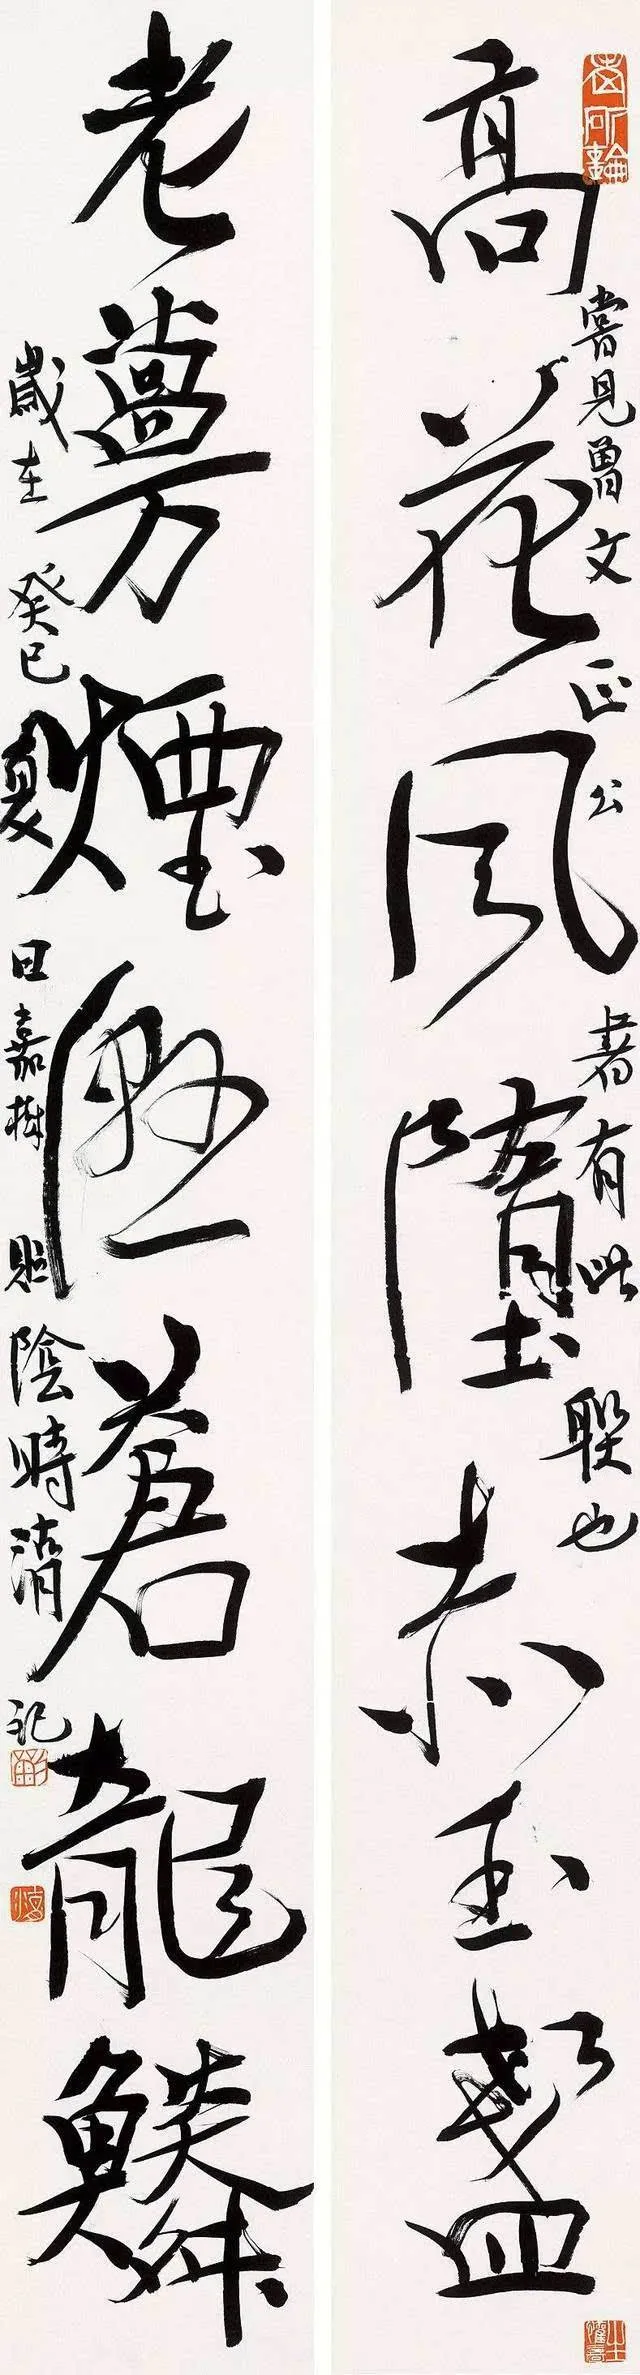 高花風墮赤玉盞
嘗見曾文正公書有此聯也
老蔓煙濕蒼龍鱗
歲在癸巳夏日嘉樹貽陰時清記